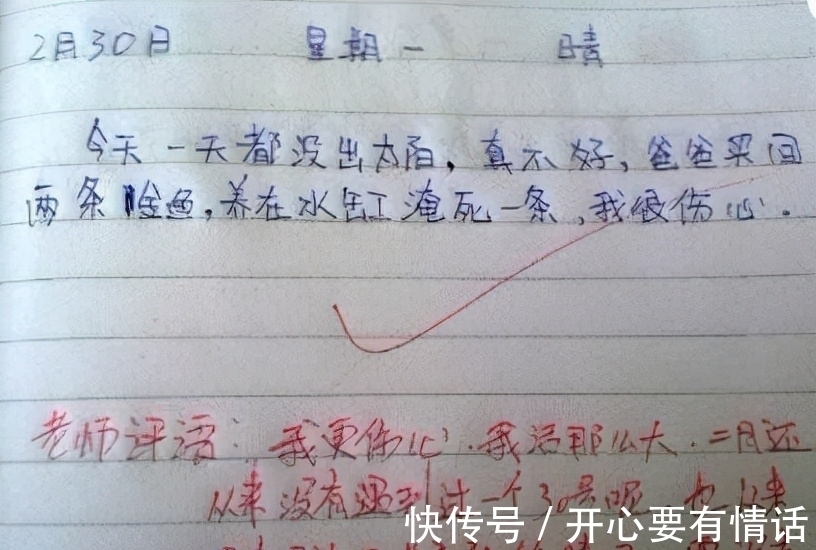 2月30日 星期一 晴
今天一天都没出太阳，真不好，爸爸买回
两条金鱼，养在水缸淹死一条，我很伤心.
老师评语：我更伤心.我活那么大.二月还
从来没有遇到过一个30号呢 也从来
快传号 / 开心要有情话